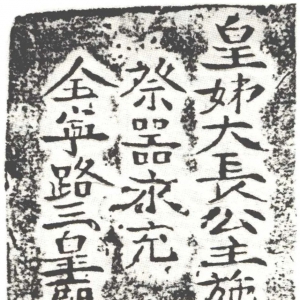 皇姊大長公主施
祭器永充
全寧路三皇